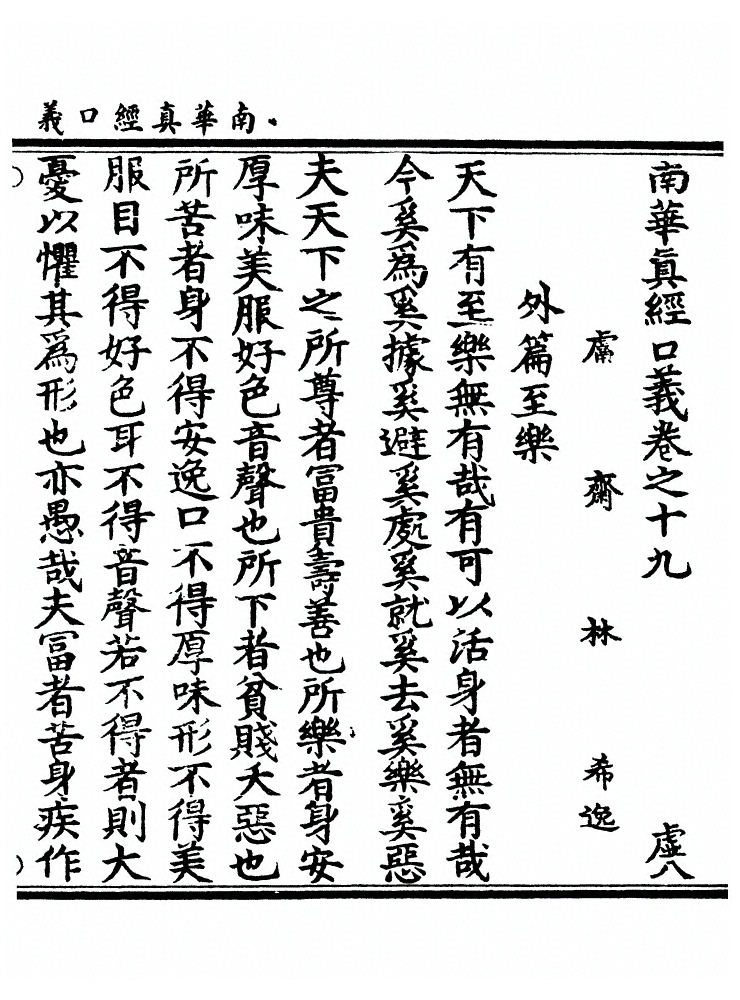 南華真經口義
南華眞經口義卷之十九 虛八
鬳齋林希逸
外篇至樂
天下有至樂無有哉有可以活身者無有哉
今奚為奚據奚避奚處奚就奚去奚樂奚惡
夫天下之所尊者冨貴壽善也所樂者身安
厚味美服好色音聲也所下者貧賤夭惡也
所苦者身不得安逸口不得厚味形不得美
服目不得好色耳不得音聲若不得者則大
憂以懼其為形也亦愚哉夫冨者苦身疾作